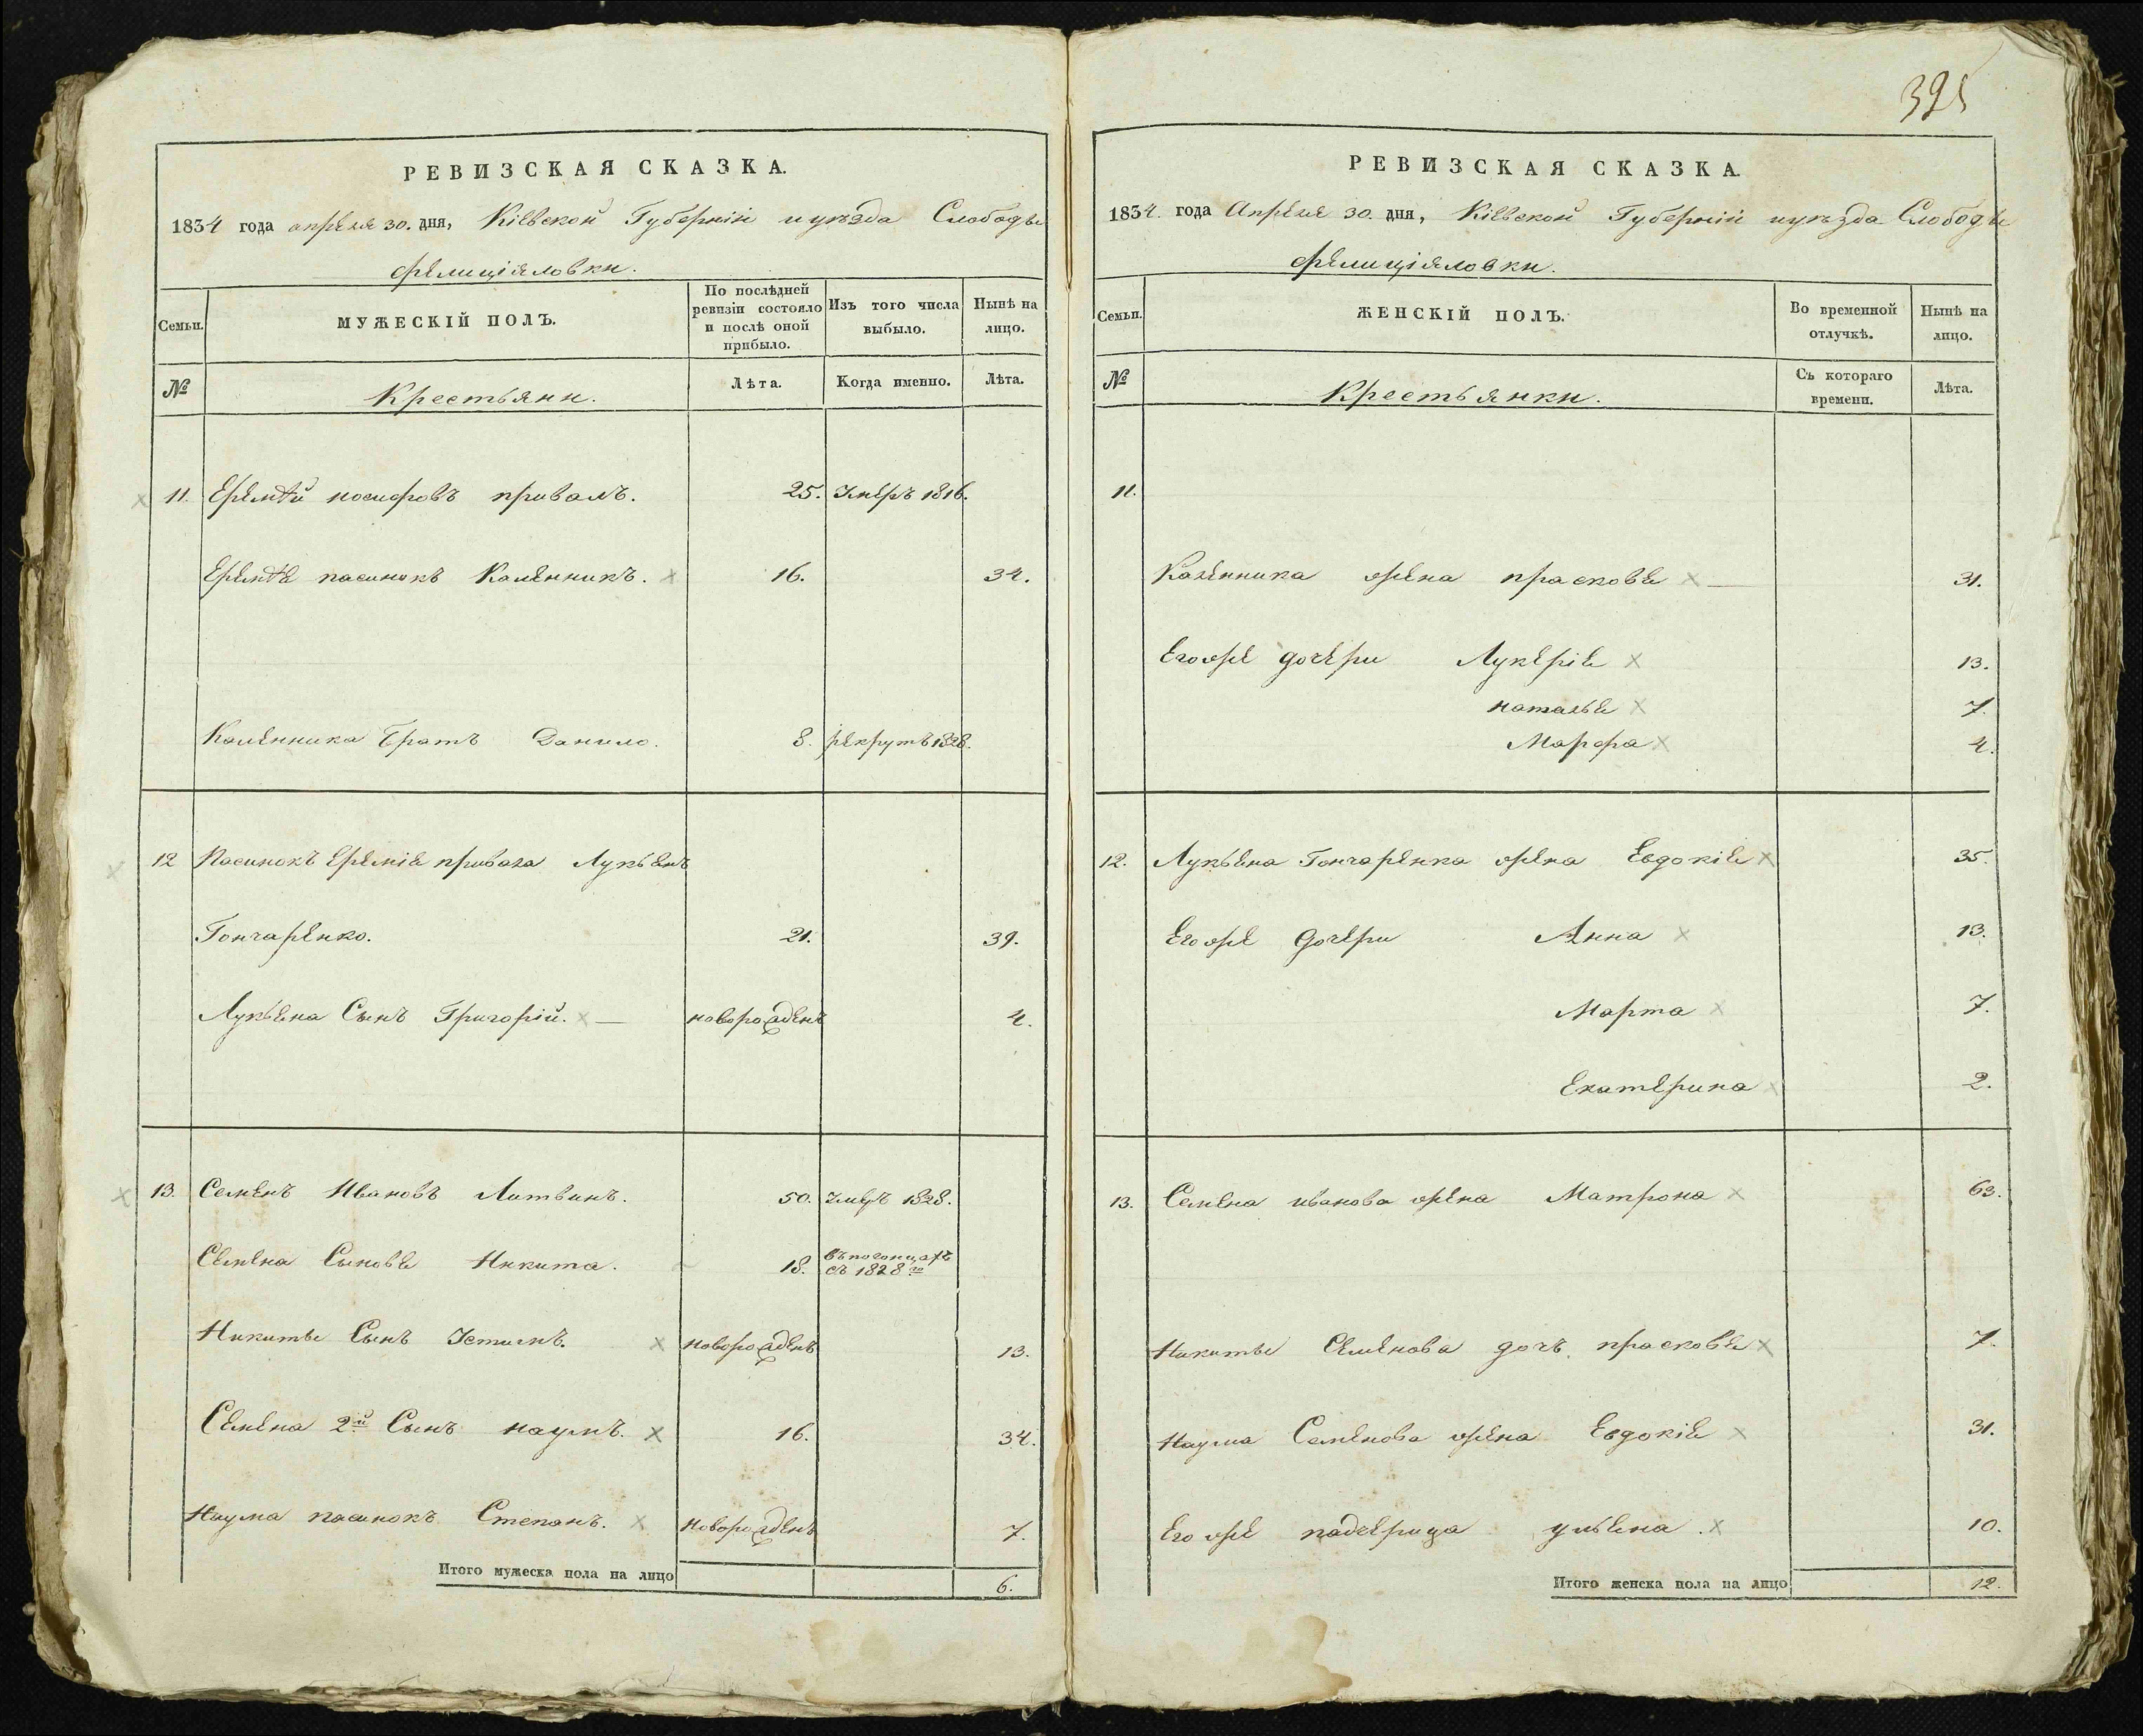 395
РЕВИЗСКАЯ СКАЗКА.
1834 года апреля 30. дня, Кіевской Губерніи и уезда Слободы
Фелиціяловки.
Семьи.
МУЖЕСКІЙ ПОЛЪ.
По послѣдней ревизіи состояло и послѣ оной прибыло.
Изъ того числа выбыло.
Нынѣ на лицо.
№
Крестьяни.
Лѣта.
Когда именно.
Лѣта.
11. Еремѣй иосифовъ привалъ. 25. Умеръ 1816.
Еремѣя пасинокъ Калѣнникъ. 16. 34.
Калѣнника братъ Данило. 8. рекрутъ 1828.
12 Пасинокъ Еремія привала Лукьянъ
Гончаренко. 21. 39.
Лукьяна Сынъ Григорій. — новорожденъ 4.
13. Семенъ Ивановъ Литвинъ. 50. умеръ 1828.
Семена Сыновья Никита. 18. въ погонцахъ съ 1828го
Никиты Сынъ Устимъ. новорожденъ 13.
Семена 2й Сынъ наумъ. 16. 34.
Наума пасинокъ Степанъ. новорожденъ 7.
Итого мужеска пола на лицо 6.
РЕВИЗСКАЯ СКАЗКА.
1834. года Апреля 30. дня, Кіевской Губерніи и уезда Слободы
Фелиціяловки.
Семьи.
ЖЕНСКІЙ ПОЛЪ.
Во временной отлучкѣ.
Нынѣ на лицо.
№
Крестьянки.
Съ котораго времени.
Лѣта.
11.
Каленника жена прасковья — 31.
Его же дочери Лукерія 13.
наталья 7.
Марфа 4.
12. Лукьяна Гончаренка жена Евдокія 35.
Его же дочери Анна 13.
Марта 7.
Екатерина 2.
13. Семена иванова жена Матрона 63.
Никиты Семенова дочь прасковья 7.
Наума Семенова жена Евдокія 31.
Его же падчерица ульяна. 10.
Итого женска пола на лицо 12.